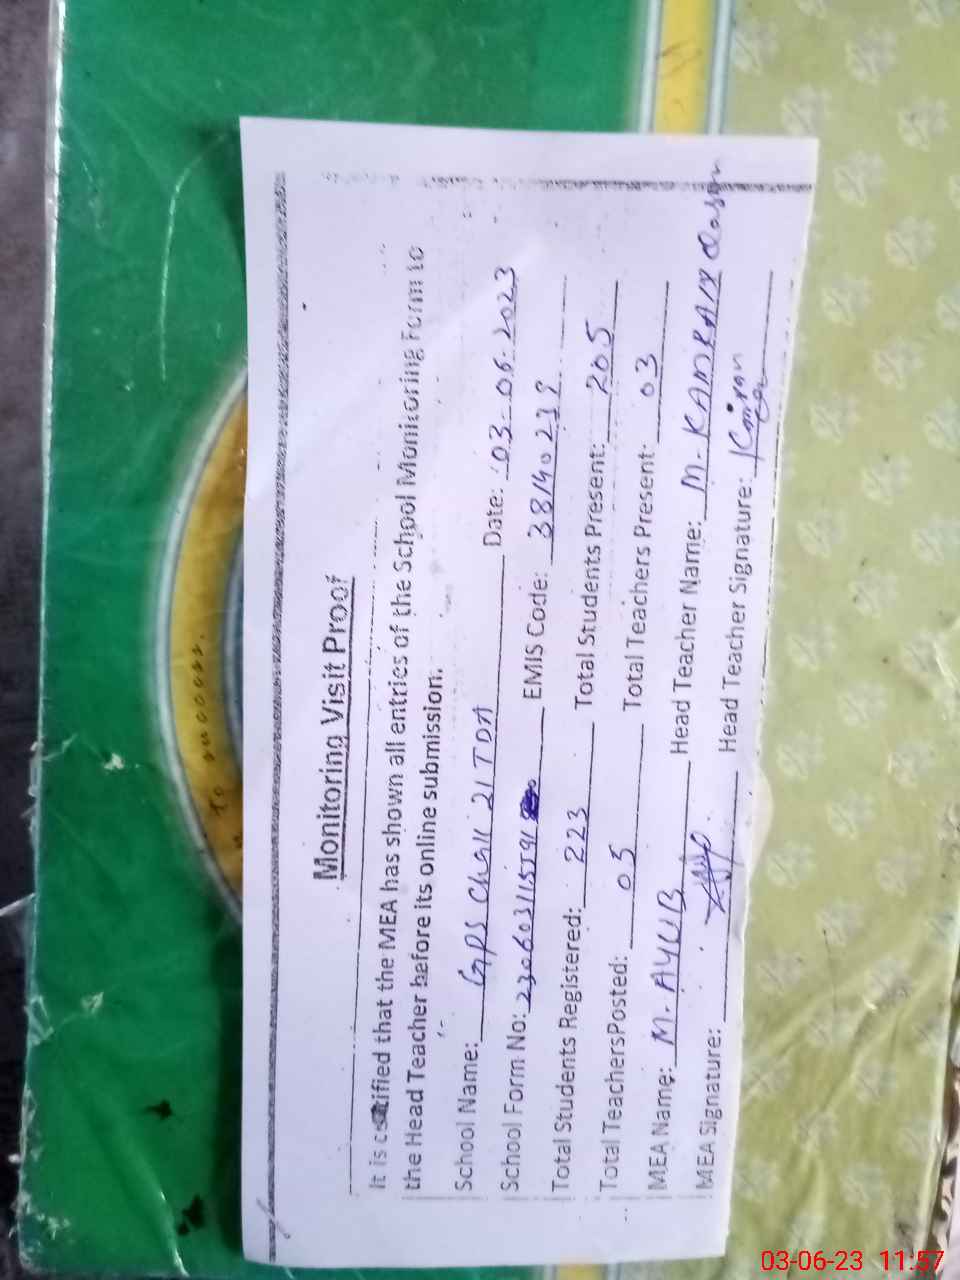 Monitoring Visit Proof
It is certified that the MEA has shown all entries of the School Monitoring Form to
the Head Teacher before its online submission.
School Name: GPS Chak 21 TDA Date: 03-06-2023
School Form No: EMIS Code:
Total Students Registered: 223 Total Students Present: 205
Total TeachersPosted: 05 Total Teachers Present: 03
MEA Name: M. AYUB Head Teacher Name: M. KAMRAN
MEA Signature: Head Teacher Signature: Kamran
To success.
03-06-23 11:57